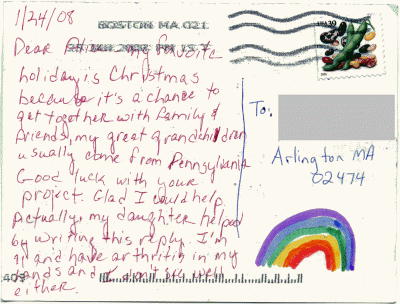 1/24/08
BOSTON MA 021
Dear my favorite
holiday is Christmas
because it's a chance to
get together with family &
friends, my great grandchildren
usually come from Pennsylvania
Good luck with your
project. Glad I could help.
Actually, my daughter helped
by writing this reply. I'm
and have arthritis in my
hands and I don't see well
either.
To:
Arlington MA
02474
USA 39